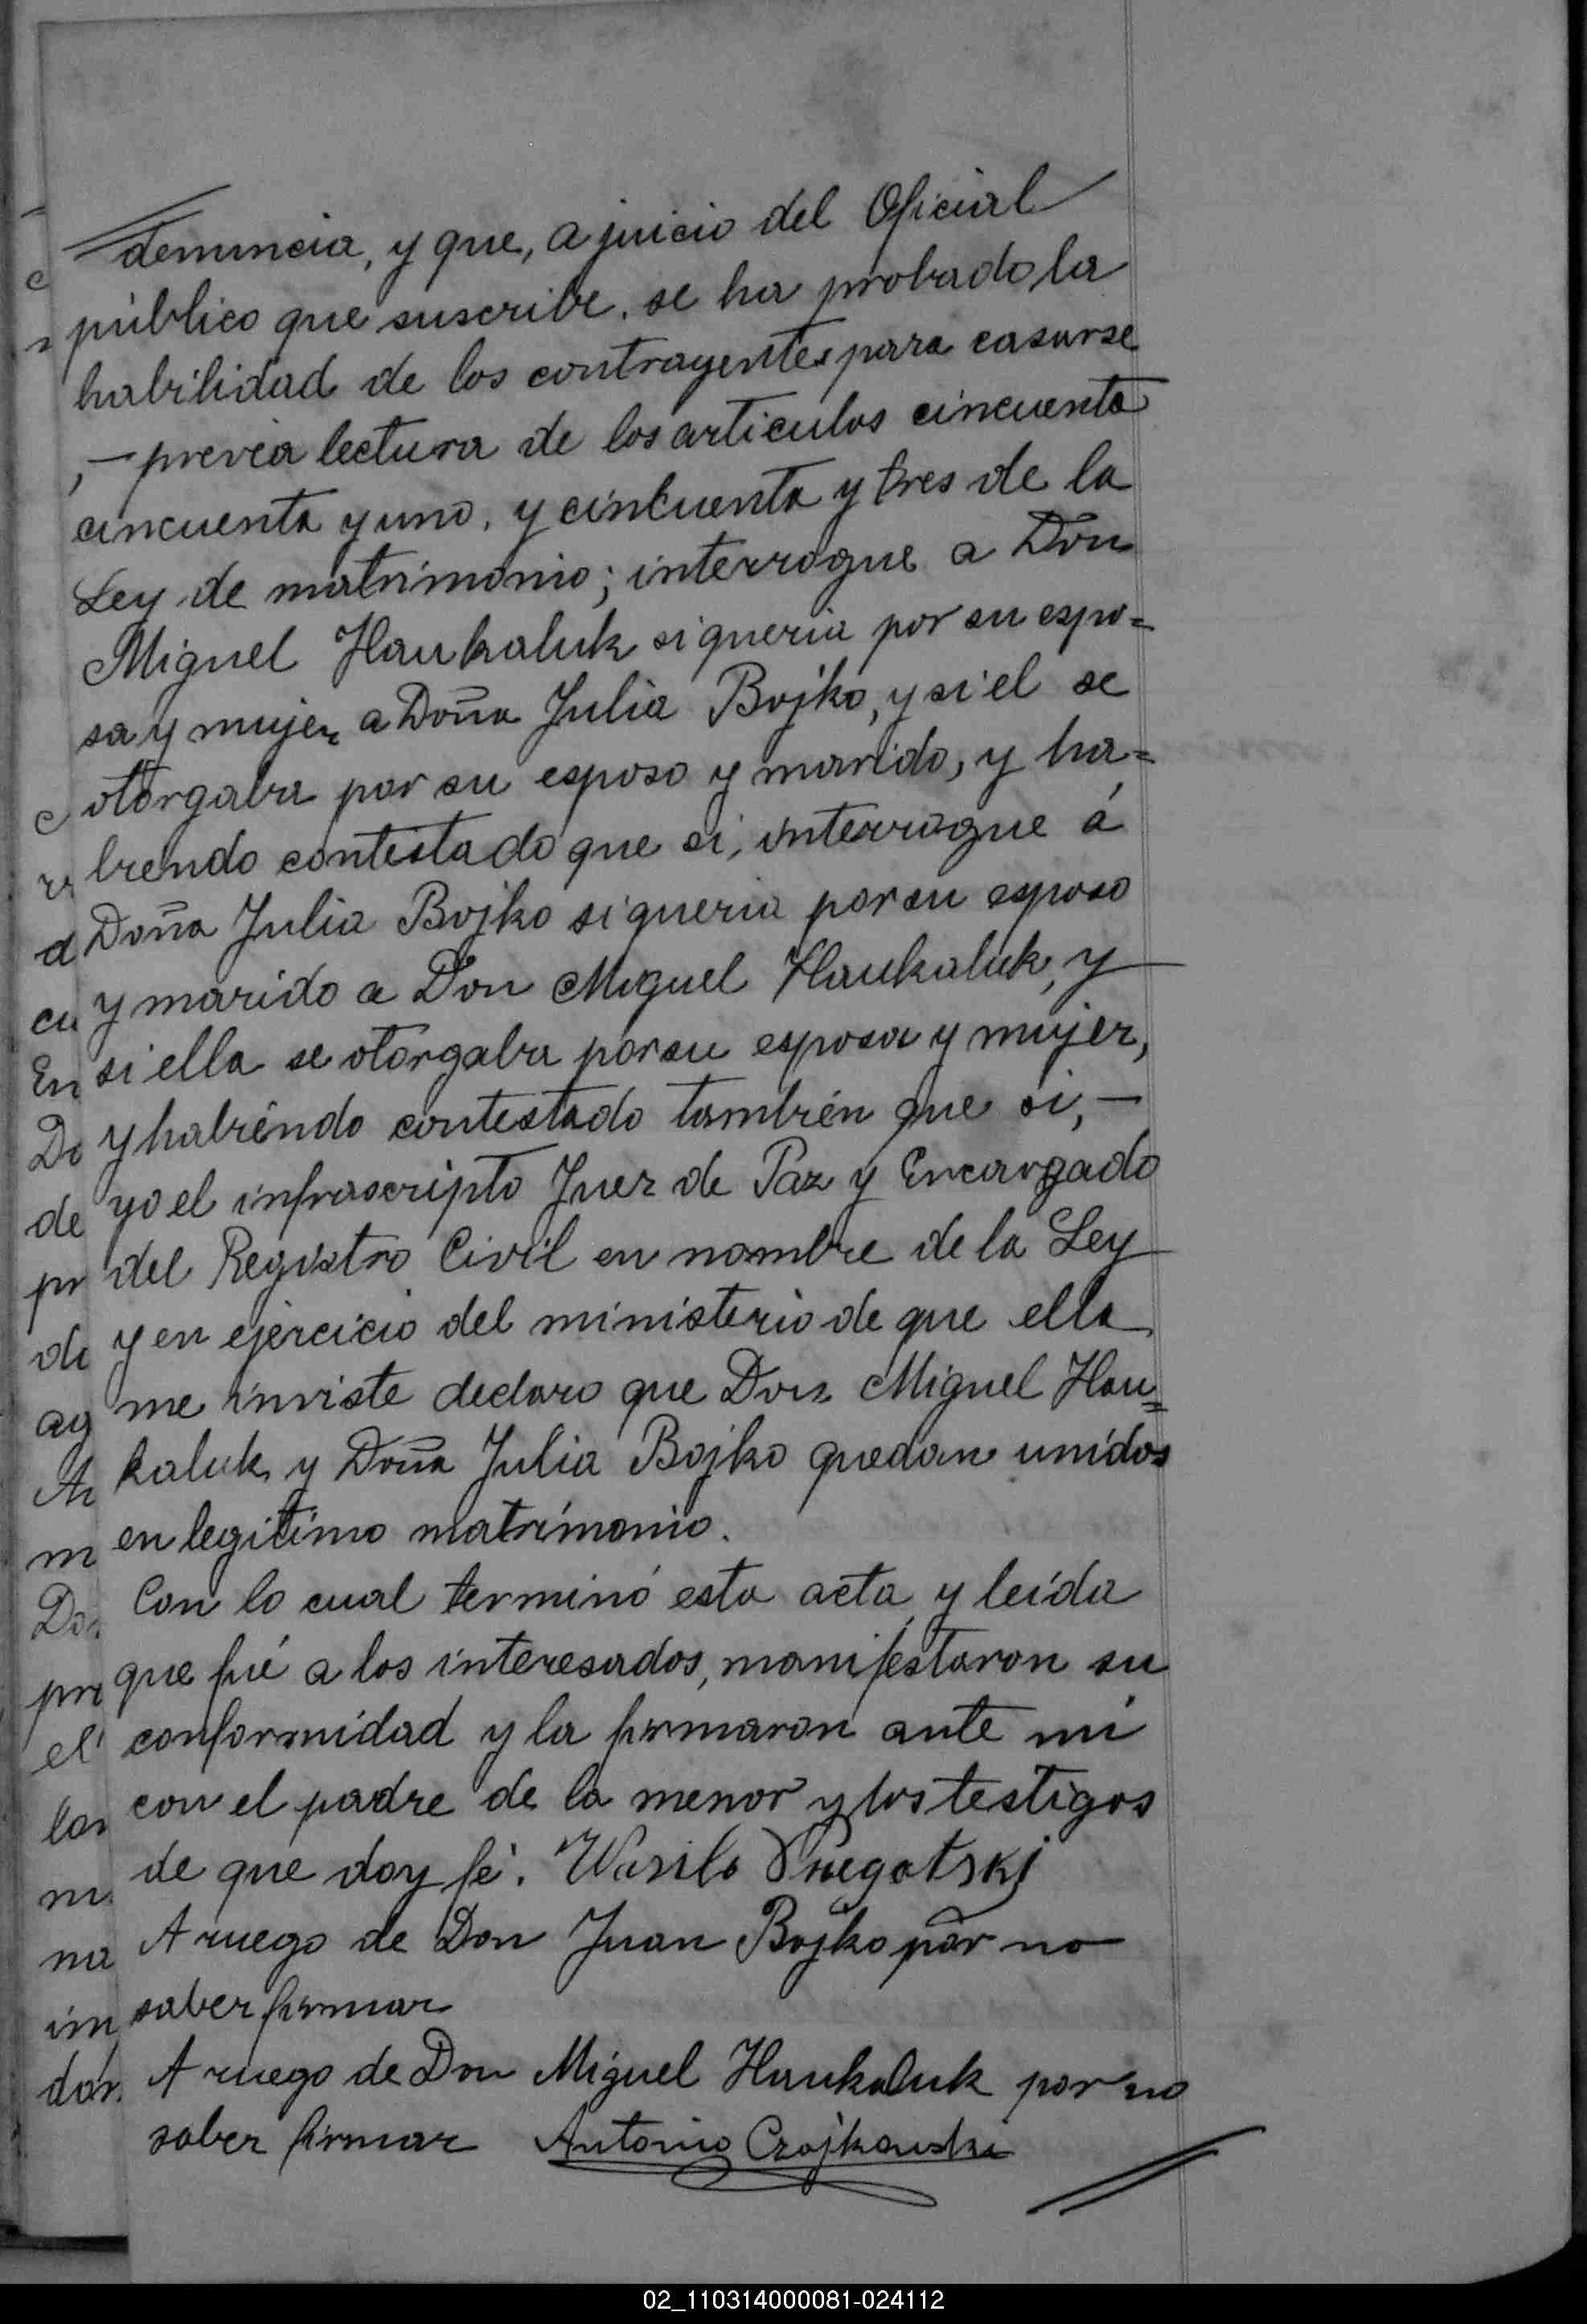 denuncia, y que, a juicio del Oficial
público que suscribe, se ha probado la
habilidad de los contrayentes para casarse
,— previa lectura de los articulos cincuenta
cincuenta y uno, y cincuenta y tres de la
Ley de matrimonio; interrogue a Don
Miguel Haukaluk si queria por su espo=
sa y mujer a Doña Julia Bojko, y si el se
otorgaba por su esposo y marido, y ha=
biendo contestado que si, interrogue á
Doña Julia Bojko si queria por su esposo
y marido a Don Miguel Haukaluk, y
si ella se otorgaba por su esposa y mujer,
y habiéndo contestado también que si, —
yo el infrascripto Juez de Paz y Encargado
del Registro Civil en nombre de la Ley
y en ejercicio del ministerio de que ella
me inviste declaro que Don Miguel Hau=
kaluk y Doña Julia Bojko quedan unidos
en legitimo matrimonio.
Con lo cual terminó esta acta, y leída
que fué a los interesados, manifestaron su
conformidad y la firmaron ante mi
con el padre de la menor y los testigos
de que doy fé. Wasilo
A ruego de Don Juan Bojko por no
saber firmar
A ruego de Don Miguel Haukaluk por no
saber firmar Antonio Czajkowski
02_110314000081-024112